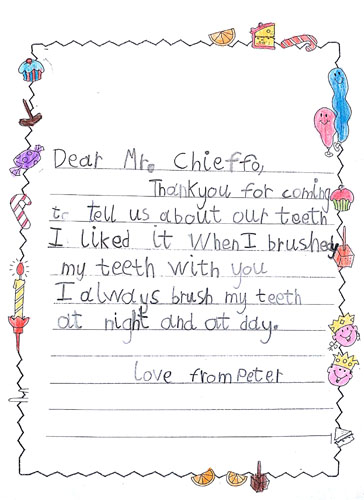 Dear Mr. Chieffo,
Thankyou for coming
to tell us about our teeth
I liked it when I brushed
my teeth with you
I always brush my teeth
at night and at day.
love from Peter